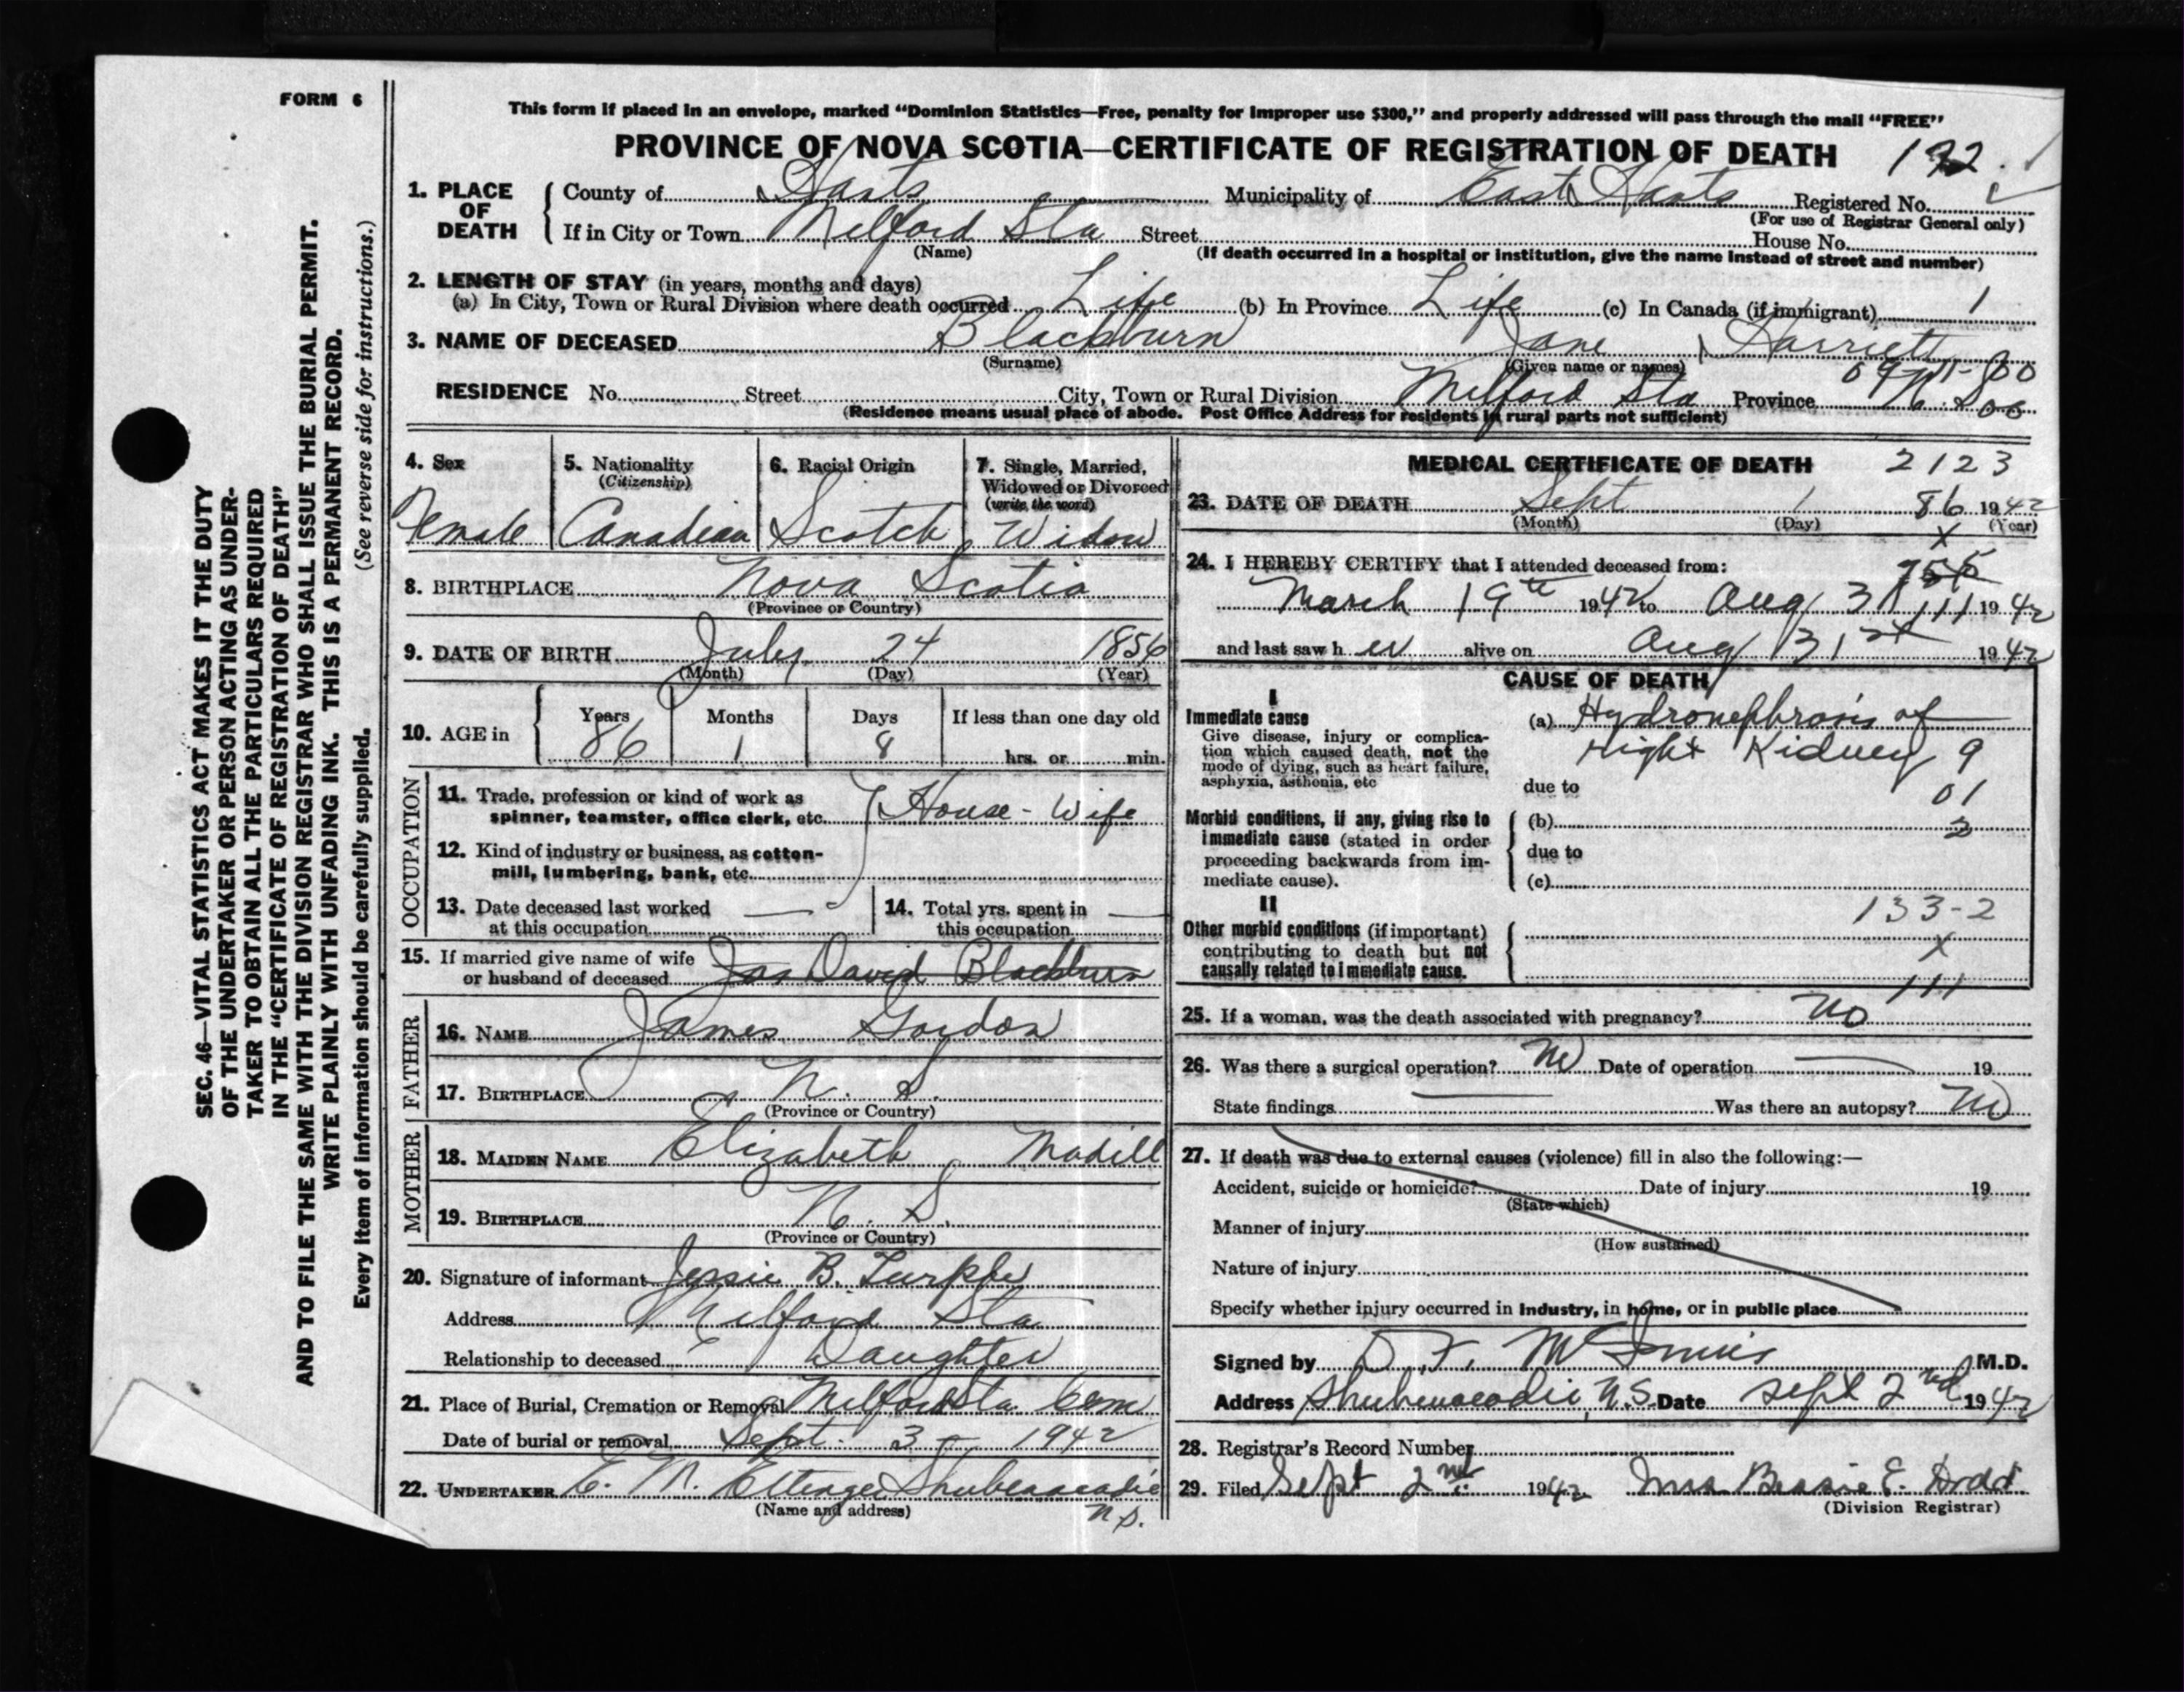 FORM 6
This form if placed in an envelope, marked "Dominion Statistics—Free, penalty for improper use $300," and properly addressed will pass through the mail "FREE"
PROVINCE OF NOVA SCOTIA—CERTIFICATE OF REGISTRATION OF DEATH
1. PLACE OF DEATH County of Hants Municipality of East Hants Registered No.
(For use of Registrar General only)
If in City or Town Milford Sta Street House No.
(Name) (If death occurred in a hospital or institution, give the name instead of street and number)
2. LENGTH OF STAY (in years, months and days)
(a) In City, Town or Rural Division where death occurred Life (b) In Province Life (c) In Canada (if immigrant) 1
3. NAME OF DECEASED Blackburn Jane Harriett
(Surname) (Given name or names)
RESIDENCE No. Street City, Town or Rural Division Milford Sta Province N.S.
(Residence means usual place of abode. Post Office Address for residents in rural parts not sufficient)
4. Sex
Female
5. Nationality
(Citizenship)
Canadian
6. Racial Origin
Scotch
7. Single, Married,
Widowed or Divorced
(write the word)
Widow
8. BIRTHPLACE Nova Scotia
(Province or Country)
9. DATE OF BIRTH July 24 1856
(Month) (Day) (Year)
10. AGE in Years Months Days If less than one day old
86 1 8 hrs. or min.
OCCUPATION
11. Trade, profession or kind of work as
spinner, teamster, office clerk, etc. House-Wife
12. Kind of industry or business, as cotton-
mill, lumbering, bank, etc.
13. Date deceased last worked
at this occupation —
14. Total yrs. spent in
this occupation —
15. If married give name of wife
or husband of deceased Jas David Blackburn
FATHER
16. NAME James Gordon
17. BIRTHPLACE N. S.
(Province or Country)
MOTHER
18. MAIDEN NAME Elizabeth Madill
19. BIRTHPLACE N. S.
(Province or Country)
20. Signature of informant Jessie B.
Address Milford Sta
Relationship to deceased Daughter
21. Place of Burial, Cremation or Removal Milford Sta Cem
Date of burial or removal Sept. 3 - 1942
22. UNDERTAKER E. M. Ettinger Shubenacadie
(Name and address) N.S.
MEDICAL CERTIFICATE OF DEATH 2123
23. DATE OF DEATH Sept 1 86 1942
(Month) (Day) (Year)
X
24. I HEREBY CERTIFY that I attended deceased from:
March 19th 1942 to Aug 31 111 1942
and last saw her alive on Aug 31st 1942
CAUSE OF DEATH
I
Immediate cause
Give disease, injury or complica-
tion which caused death, not the
mode of dying, such as heart failure,
asphyxia, asthenia, etc
(a) Hydronephrosis of
right Kidney 9
due to 01
Morbid conditions, if any, giving rise to
immediate cause (stated in order
proceeding backwards from im-
mediate cause).
(b) 2
due to
(c)
II
Other morbid conditions (if important)
contributing to death but not
causally related to immediate cause.
133-2
X
111
25. If a woman, was the death associated with pregnancy? No
26. Was there a surgical operation? No Date of operation — 19
State findings — Was there an autopsy? No
27. If death was due to external causes (violence) fill in also the following:—
Accident, suicide or homicide? Date of injury 19
(State which)
Manner of injury
(How sustained)
Nature of injury
Specify whether injury occurred in industry, in home, or in public place
Signed by D. F. McInnis M.D.
Address Shubenacadie, N.S. Date Sept 2nd 1942
28. Registrar's Record Number
29. Filed Sept 2nd 1942 Mrs. Bessie E. Dodd
(Division Registrar)
SEC. 46—VITAL STATISTICS ACT MAKES IT THE DUTY
OF THE UNDERTAKER OR PERSON ACTING AS UNDER-
TAKER TO OBTAIN ALL THE PARTICULARS REQUIRED
IN THE "CERTIFICATE OF REGISTRATION OF DEATH"
AND TO FILE THE SAME WITH THE DIVISION REGISTRAR WHO SHALL ISSUE THE BURIAL PERMIT.
WRITE PLAINLY WITH UNFADING INK. THIS IS A PERMANENT RECORD.
Every item of information should be carefully supplied. (See reverse side for instructions.)